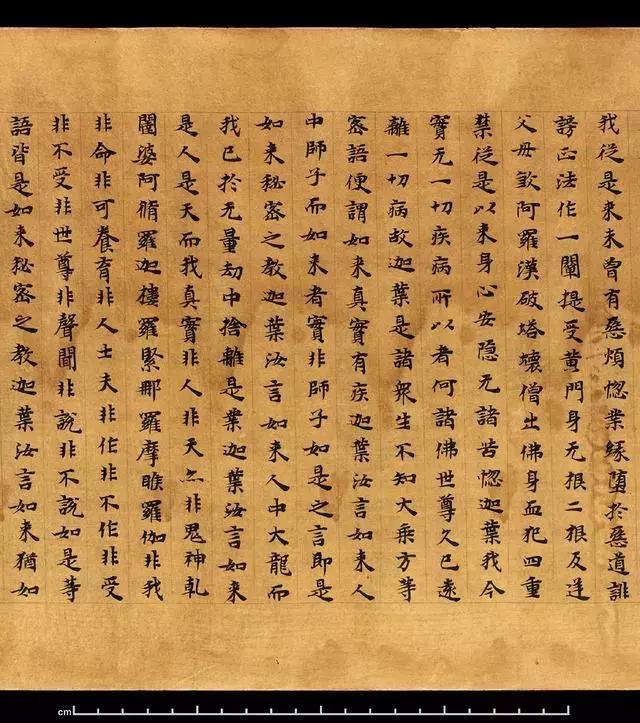 我從是来未曾有惡煩惱業緣墮於惡道誹
謗正法作一闡提受黄門身无根二根反逆
父母煞阿羅漢破塔壞僧出佛身血犯四重
禁從是以来身心安隐无諸苦惱迦葉我今
實无一切疾病所以者何諸佛世尊久已遠
離一切病故迦葉是諸衆生不知大乗方等
密語便謂如来真實有疾迦葉汝言如来人
中師子而如来者實非師子如是之言即是
如来秘密之教迦葉汝言如来人中大龍而
我已於无量劫中捨離是業迦葉汝言如来
是人是天而我真實非人非天亦非鬼神乹
闥婆阿脩羅迦樓羅緊那羅摩睺羅伽非我
非命非可養育非人士夫非作非不作非受
非不受非世尊非聲聞非說非不說如是等
語皆是如来秘密之教迦葉汝言如来猶如
cm